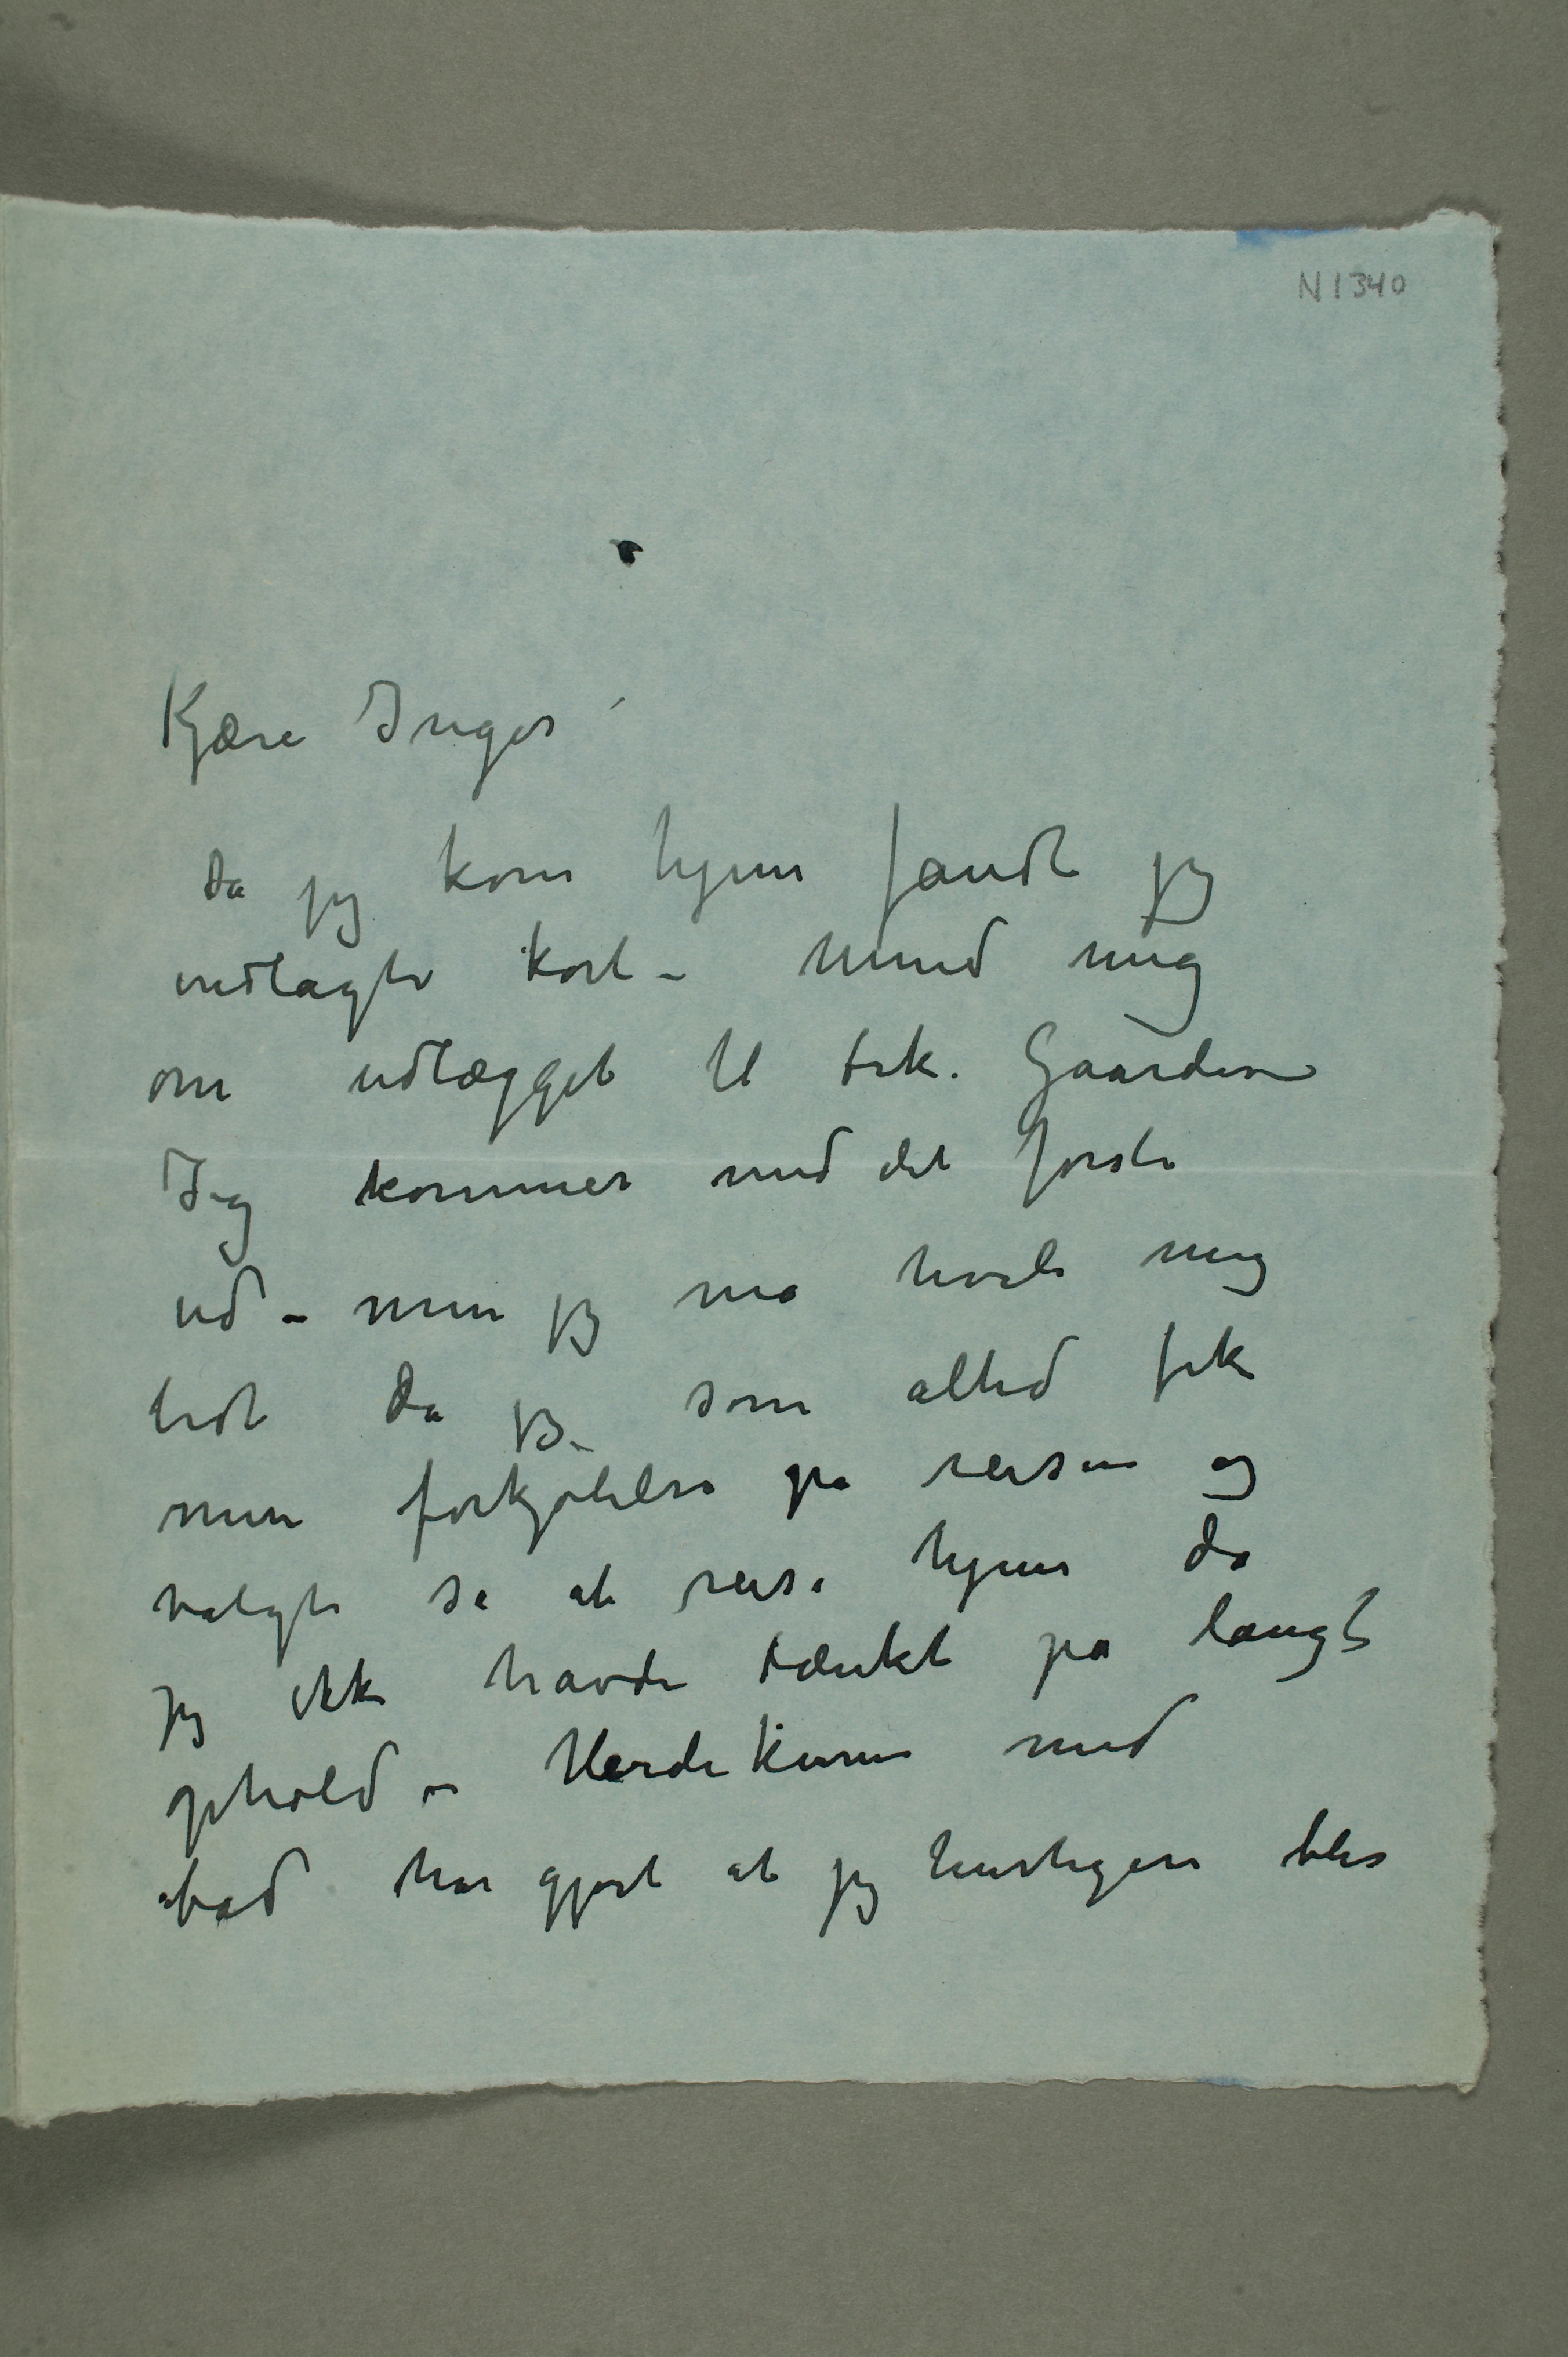 N 1340
Kjære Inger
da jeg kom hjem fandt jeg
indlagte kort – Mind mig
om udlægget til frk. Gaarden
Jeg kommer med det første
ud – men jeg må hvile mig
lidt da jeg som altid fik
min forkjølelse på reisen og
valgte så at reise hjem da
jeg ikke havde tænkt på langt
ophold – Herdekuren med
bad har gjort at jeg hurtigere blev